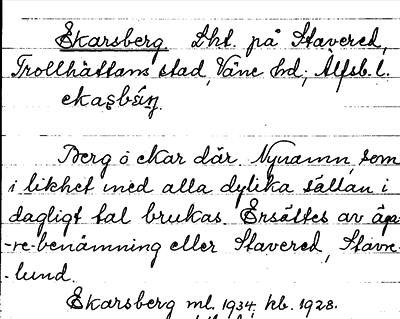 Ekarsberg. Lht. på Stavered,
Trollhättans stad, Väne hd; Älfsb. l.
ekaʂbærj.
Berg o ekar där. Nynamn, som
i likhet med alla dylika sällan i
dagligt tal brukas. Ersättes av äp-
-re-benämning eller Stavered, Stave-
-lund.
Ekarsberg ml. 1934, hb. 1928.